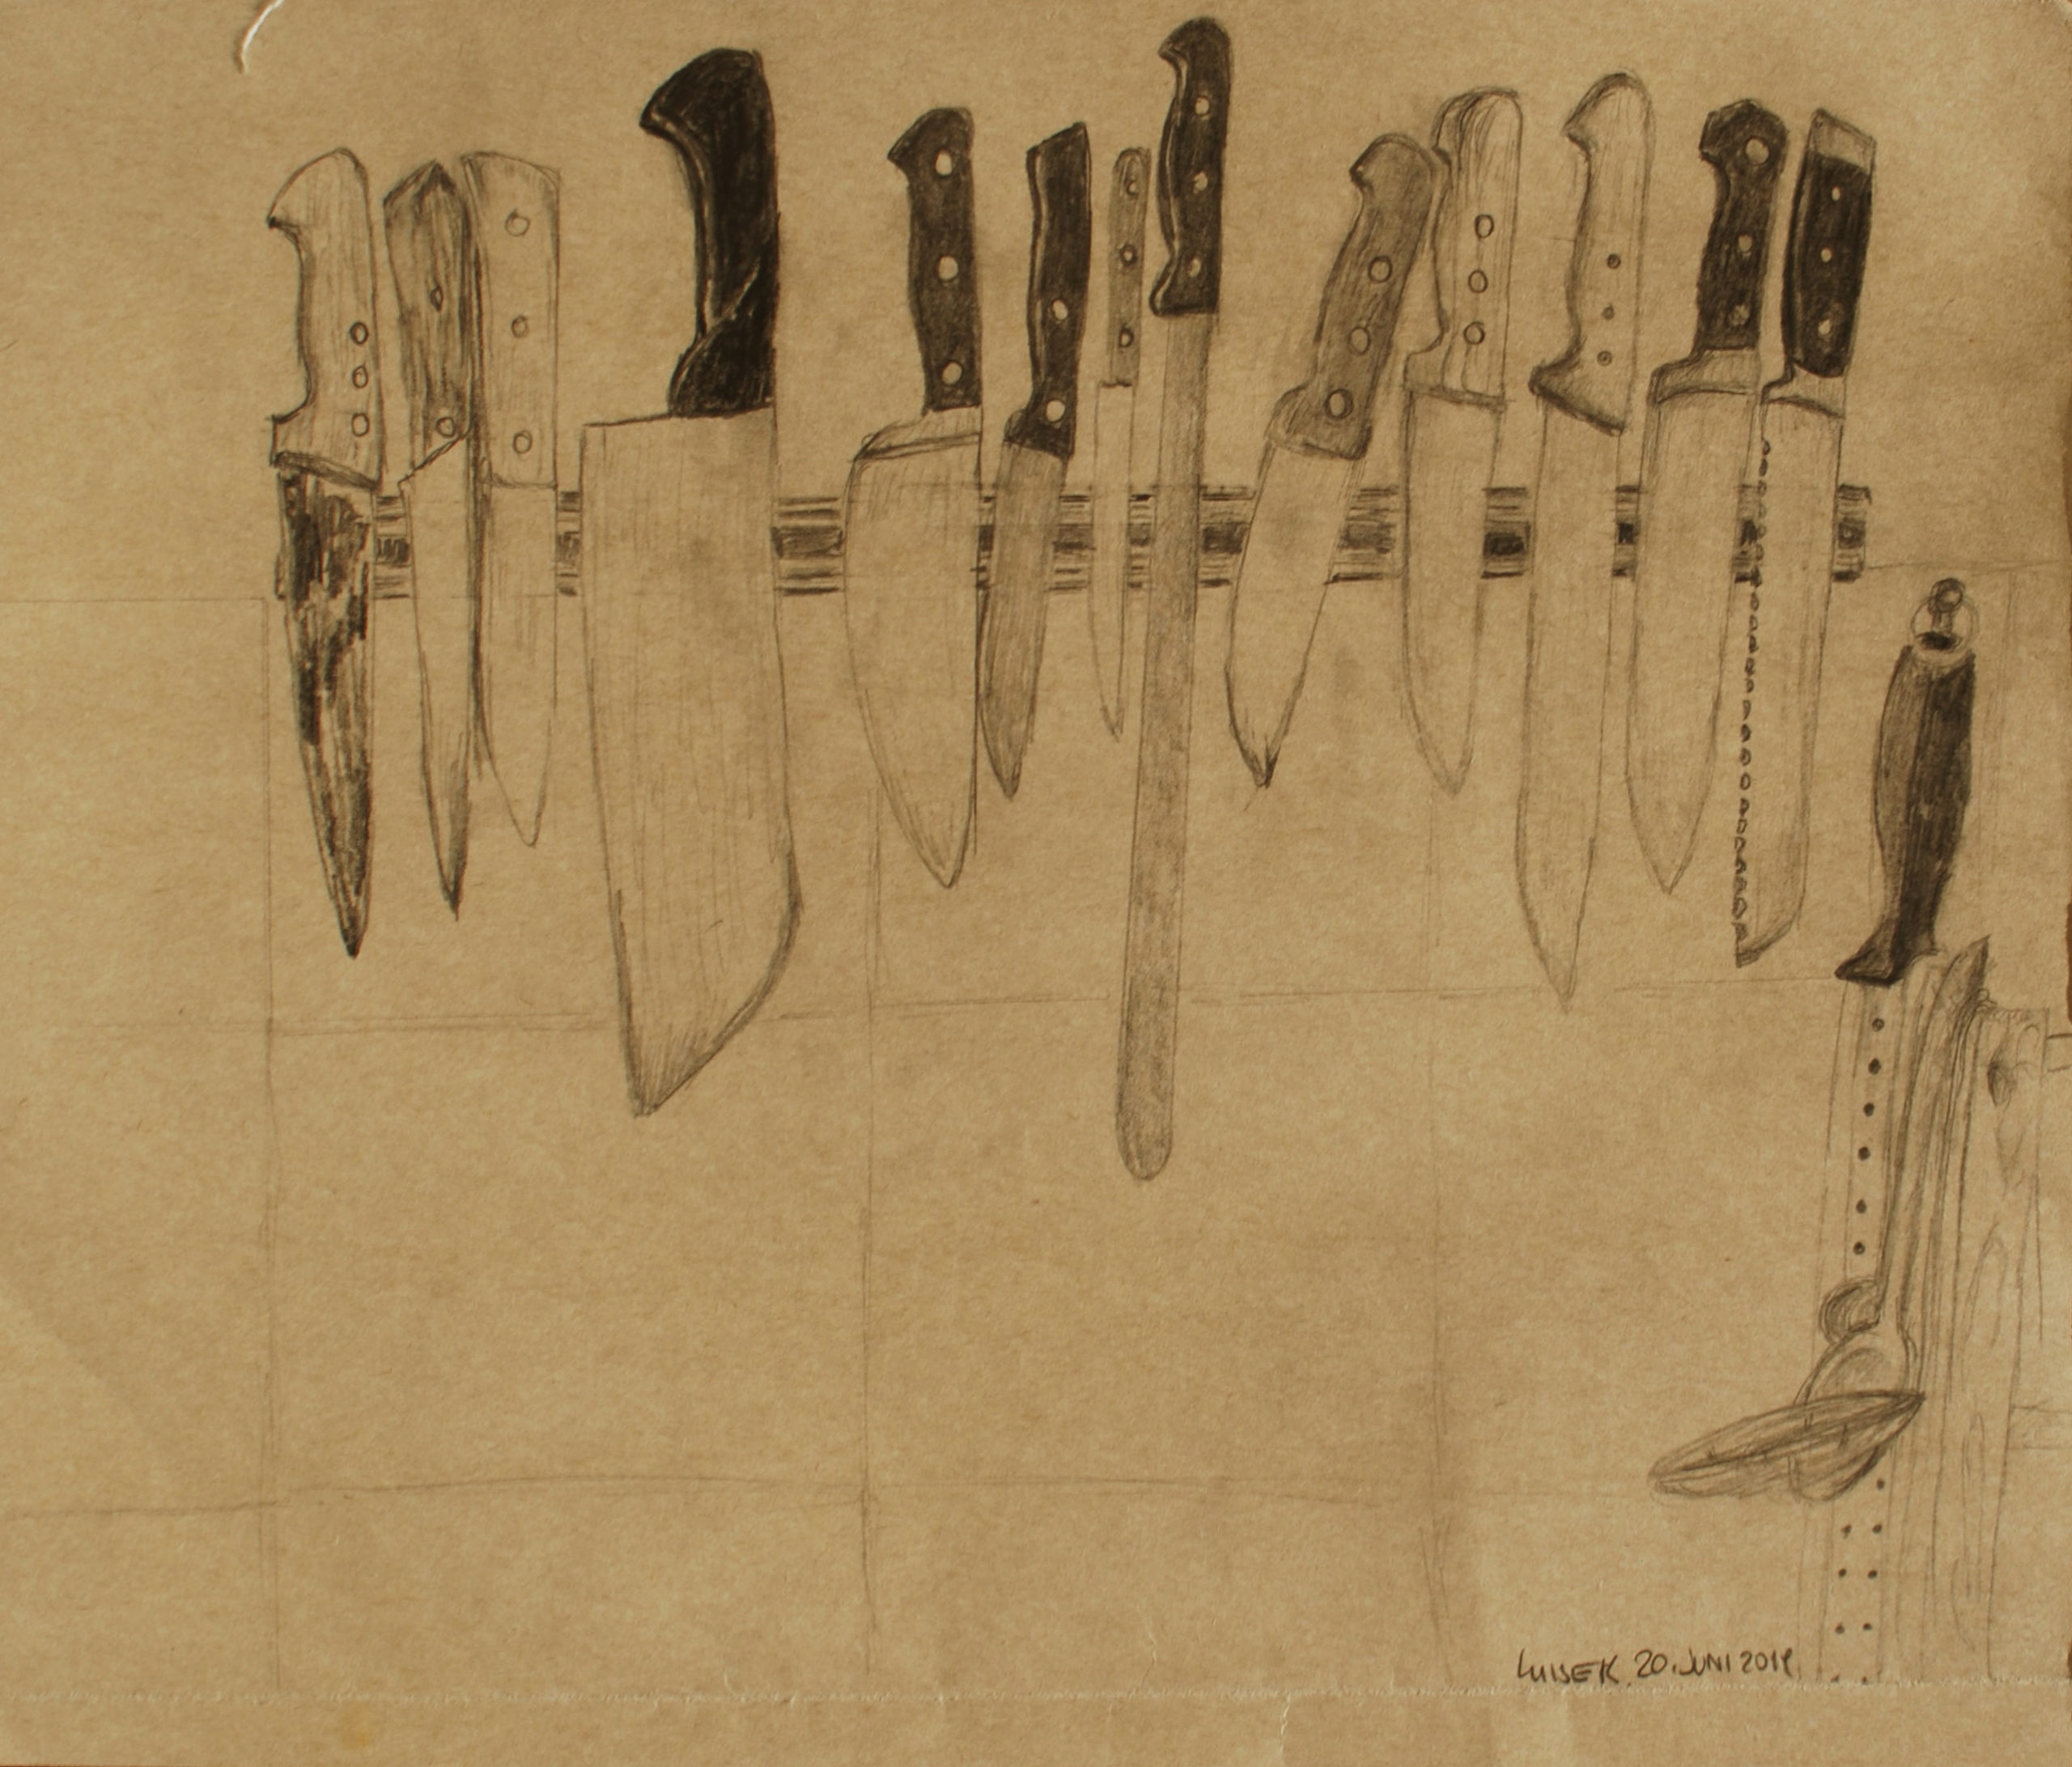 LUISE K. 20. JUNI 2014